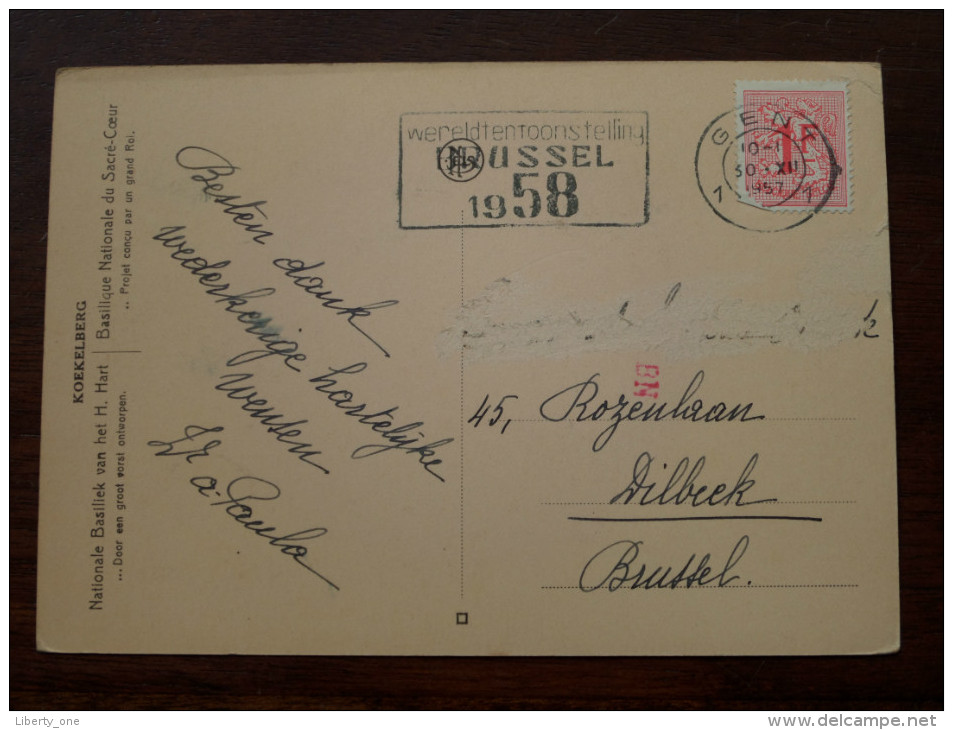 KOEKELBERG
Nationale Basiliek van het H. Hart
... Door een groot vorst ontworpen.
Basilique Nationale du Sacré-Cœur
.. Projet conçu par un grand Roi.
Besten dank
wederkerige hartelijke
wensen
Zr a. Paula
wereldtentoonstelling
BRUSSEL
1958
GENT
10-1
30 XII
1957
1 1
1F
BN
45, Rozenlaan
Dilbeek
Brussel.
Liberty_one
www.delcampe.net